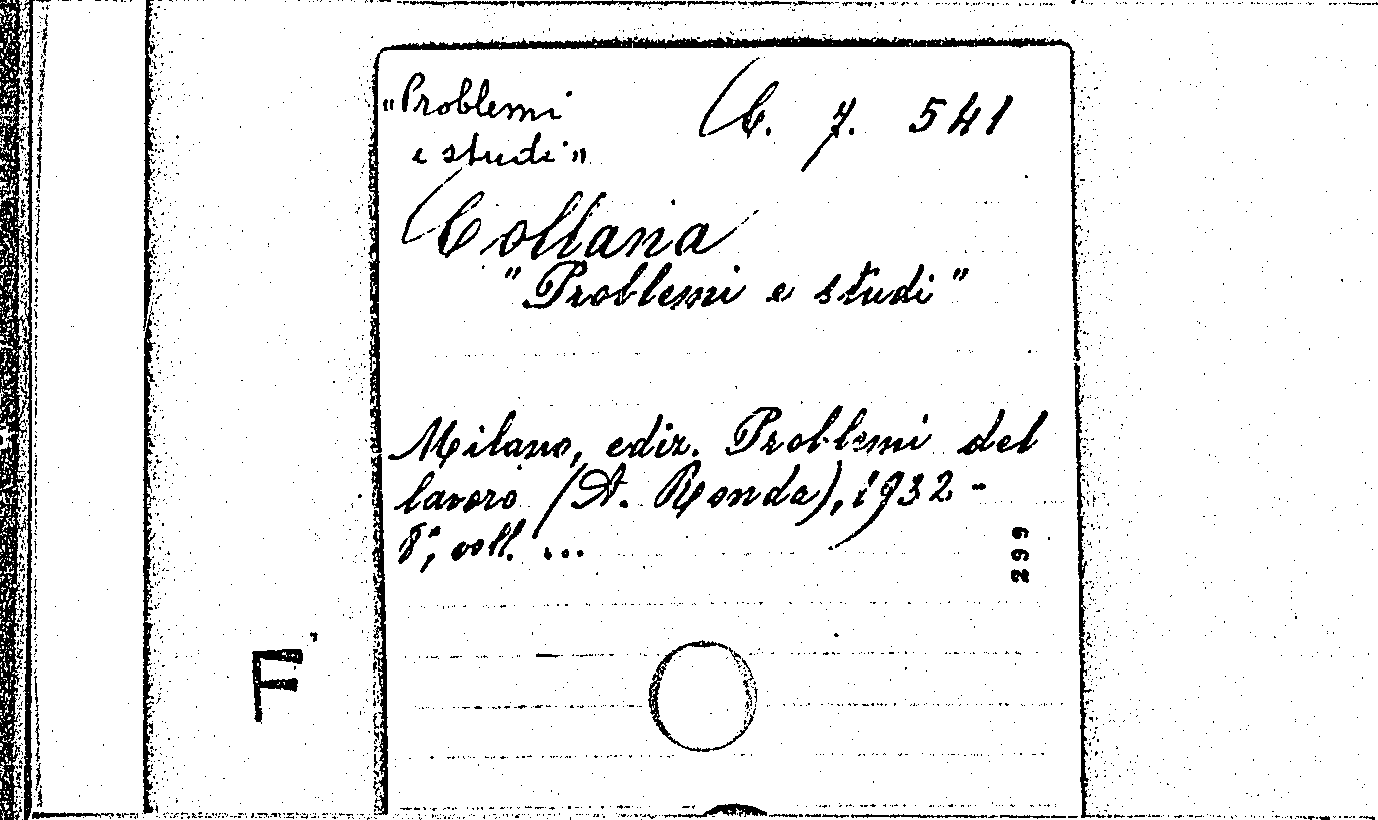 "Problemi C. 7. 541
e studi"
Collana
"Problemi e studi"
Milano, ediz. Problemi del
lavoro (A. Ronda), 1932 -
8°, voll. ...
299
F